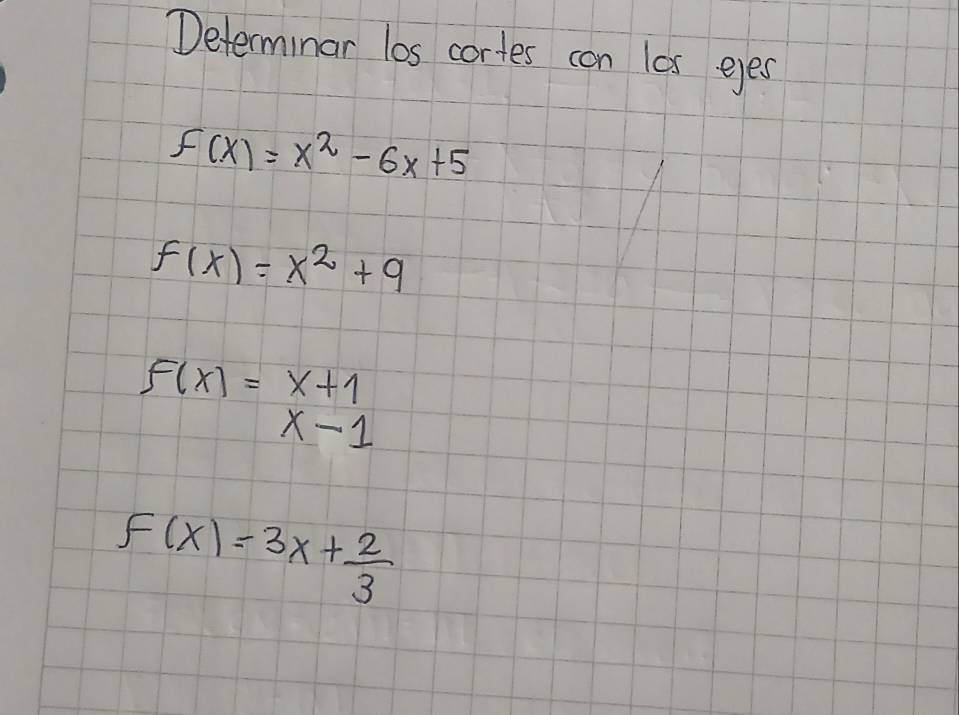 Determinar los cortes con los ejes
F(x) = x² - 6x + 5
F(x) = x² + 9
F(x) = x + 1
x - 1
F(x) = 3x + 2
3